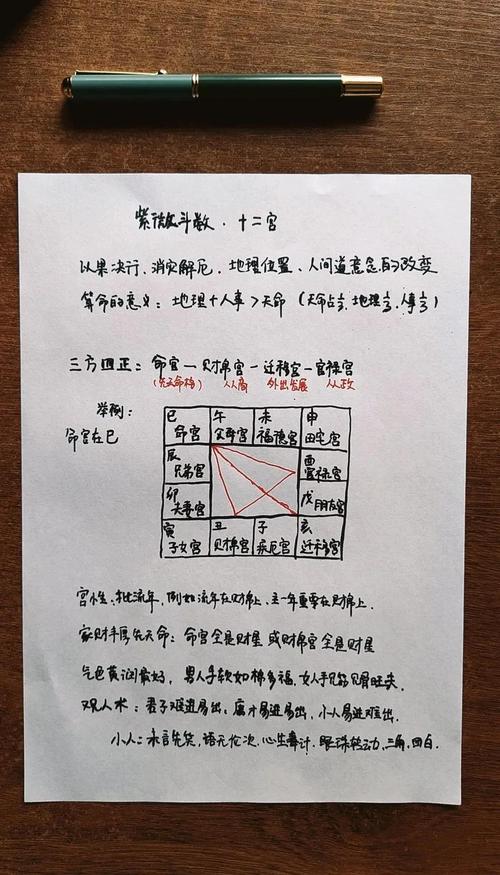 紫微斗数·十二宫
以果决行、消灾解厄、地理位置、人间道意念的改变
算命的意义：地理+人事>天命（天命占⅓、地理⅓、人事⅓）
三方四正：命宫一财帛宫-迁移宫-官禄宫
(先天命格) 从商 外出发展 从政
举例：
命宫在巳
巳 命宫
午 父母宫
未 福德宫
申 田宅宫
辰 兄弟宫
酉 官禄宫
卯 夫妻宫
戌 朋友宫
寅 子女宫
丑 财帛宫
子 疾厄宫
亥 迁移宫
宫性、批流年，例如流年在财帛上、主一年重要在财帛上.
家财丰厚先天命：命宫全是财星 或财帛宫全是财星
气色黄润最好，男人手软如棉多福.女人手旺夫.
观人术：君子难进易出，庸才易进易出，小人易进难出.
小人：未言先笑，语无伦次、心生毒计、眼珠转动、三角、四白.